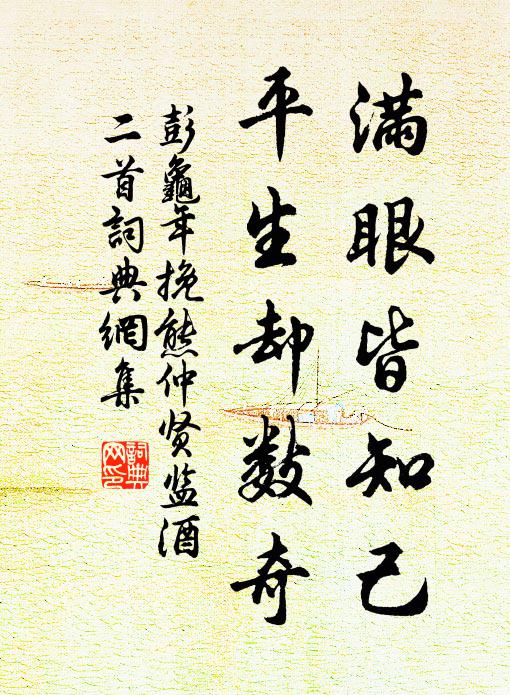 满眼皆知己
平生却数奇
彭龜年挽熊仲贤监酒
二首詞典網集
詞典
网印